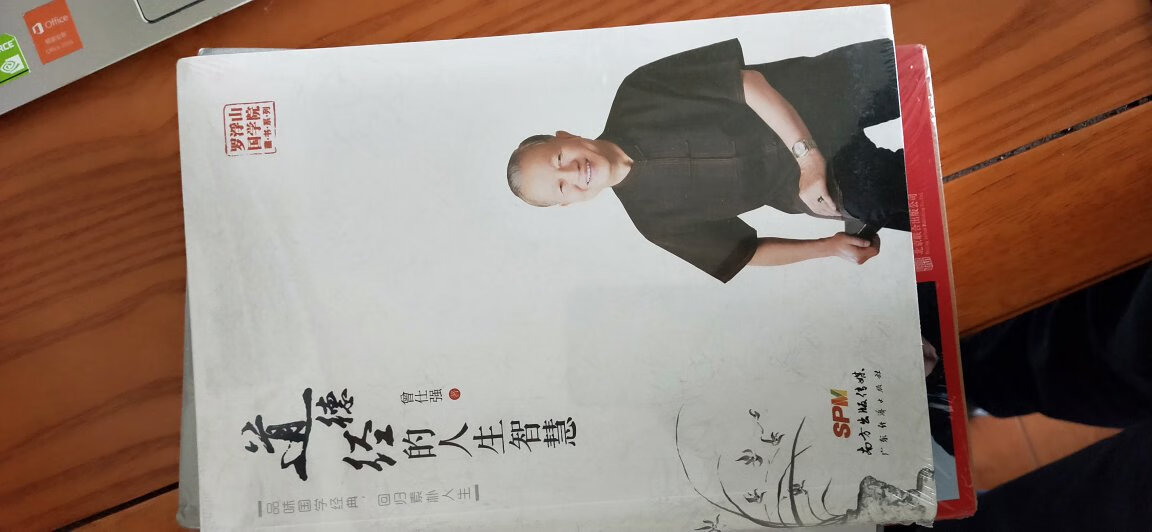 罗浮山
国学院
藏·书·系·列
道德经的人生智慧
曾仕强 著
品味国学经典，回归素朴人生
SPM
南方出版传媒
广东经济出版社
北京联合出版公司
Office